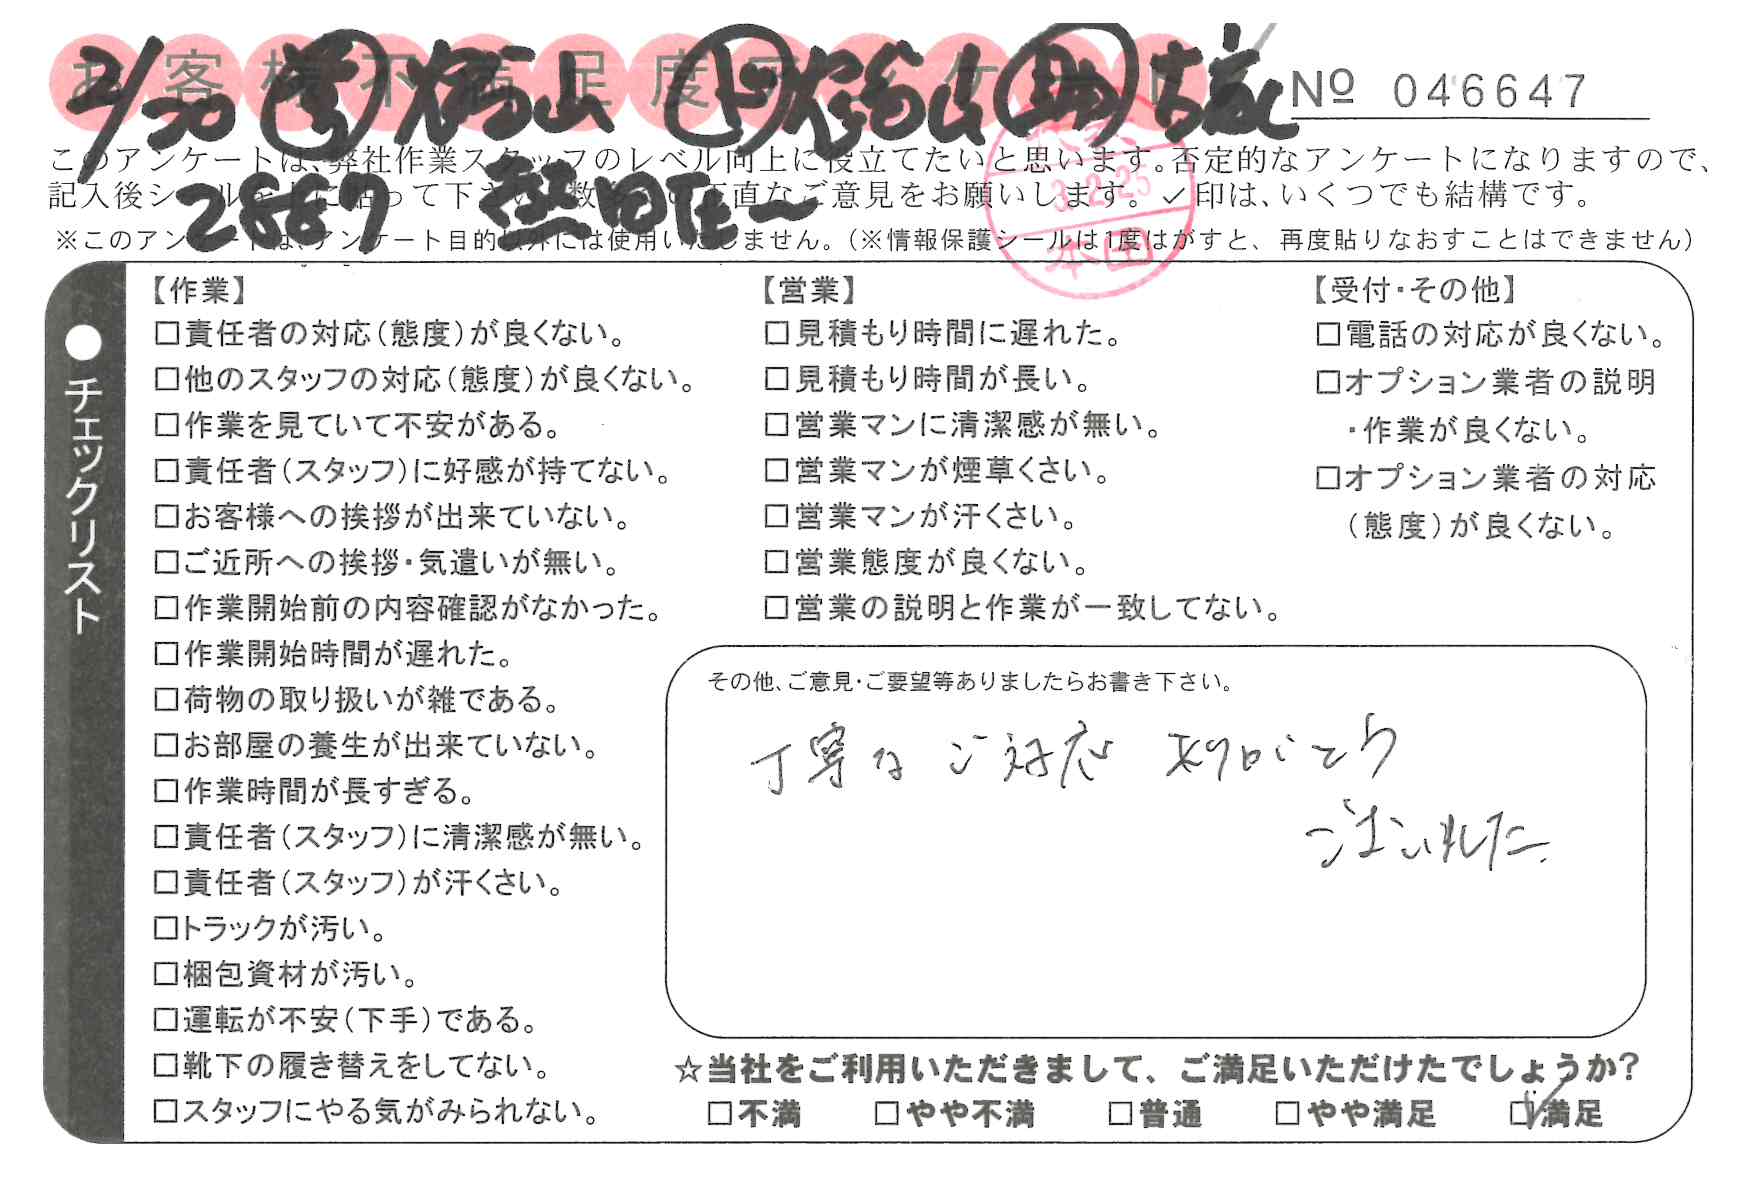 お客様不満足度アンケート
No 046647
2/20
2887
このアンケートは、弊社作業スタッフのレベル向上に役立てたいと思います。否定的なアンケートになりますので、
記入後シールを上に貼って下さい。数多くの正直なご意見をお願いします。✓印は、いくつでも結構です。
※このアンケートは、アンケート目的以外には使用いたしません。(※情報保護シールは1度はがすと、再度貼りなおすことはできません)
3.2.25
本田
●チェックリスト
【作業】
□責任者の対応(態度)が良くない。
□他のスタッフの対応(態度)が良くない。
□作業を見ていて不安がある。
□責任者(スタッフ)に好感が持てない。
□お客様への挨拶が出来ていない。
□ご近所への挨拶・気遣いが無い。
□作業開始前の内容確認がなかった。
□作業開始時間が遅れた。
□荷物の取り扱いが雑である。
□お部屋の養生が出来ていない。
□作業時間が長すぎる。
□責任者(スタッフ)に清潔感が無い。
□責任者(スタッフ)が汗くさい。
□トラックが汚い。
□梱包資材が汚い。
□運転が不安(下手)である。
□靴下の履き替えをしてない。
□スタッフにやる気がみられない。
【営業】
□見積もり時間に遅れた。
□見積もり時間が長い。
□営業マンに清潔感が無い。
□営業マンが煙草くさい。
□営業マンが汗くさい。
□営業態度が良くない。
□営業の説明と作業が一致してない。
【受付・その他】
□電話の対応が良くない。
□オプション業者の説明
・作業が良くない。
□オプション業者の対応
(態度)が良くない。
その他、ご意見・ご要望等ありましたらお書き下さい。
丁寧なご対応ありがとう
ございました。
☆当社をご利用いただきまして、ご満足いただけたでしょうか?
□不満 □やや不満 □普通 □やや満足 ☑満足